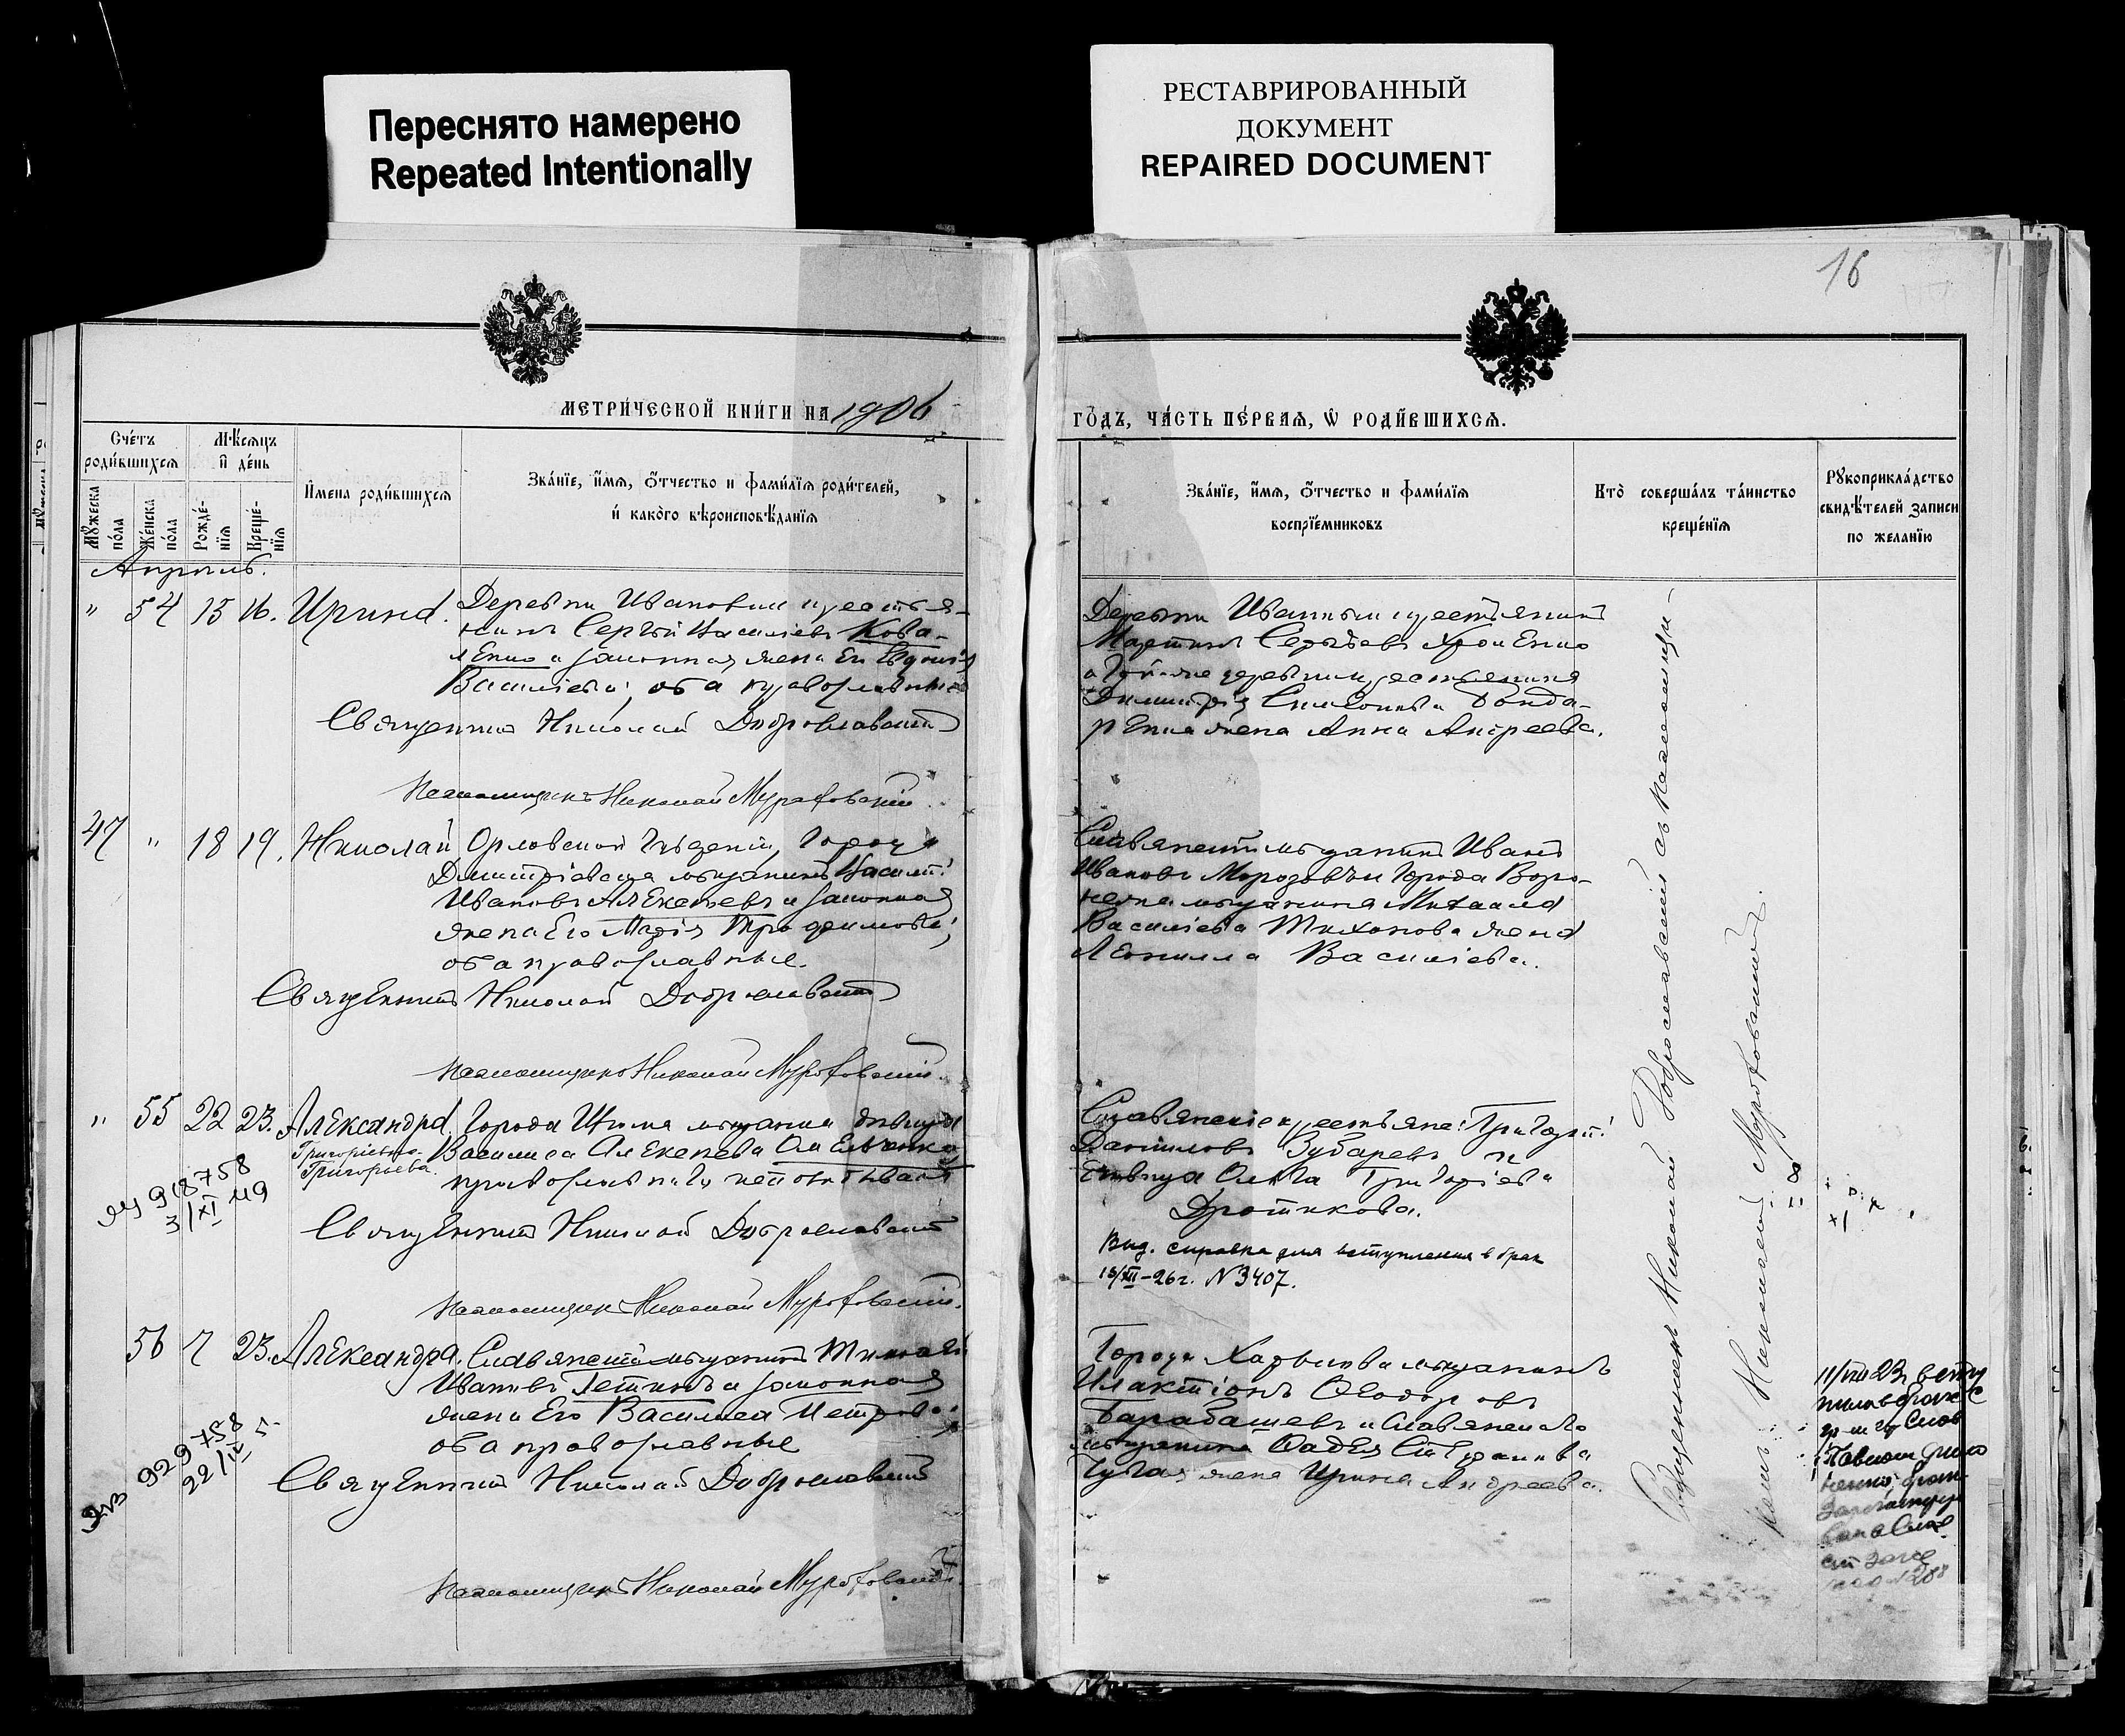 Переснято намерено
Repeated Intentionally
РЕСТАВРИРОВАННЫЙ
ДОКУМЕНТ
REPAIRED DOCUMENT
16
МЕТРИ́ЧЕСКОЙ КНИ́ГИ НА 1906
ГО́ДЪ, ЧА́СТЬ ПЕ́РВАЯ, Ѡ҆ РОДИ́ВШИХСЯ.
Сче́тъ
роди́вшихся
Мѣ́сяцъ
и҆ де́нь
Мꙋ́жеска
по́ла
Же́нска
по́ла
Рожде́-
нїя
Креще́-
нїя
И҆мена роди́вшихся
Зва́нїе, и҆́мя, ѻ҆́тчество и фами́лїя роди́телей,
и҆ како́го вѣроисповѣ́данїя
Зва́нїе, и҆́мя, ѻ҆́тчество и фами́лїя
воспрїе́мниковъ
Кто̀ соверша́лъ та́инство
креще́нїя
Рꙋкоприкла́дство
свидѣ́телей записи
по жела́нїю
Апрѣль.
" 54 15 16. Ирина.
Деревни Ивановки крестья-
нинъ Сергѣй Васильевъ Кова-
ленко и законная жена его Евдокія
Васильева, оба православные
Священникъ Николай Доброславскій
Псаломщикъ Николай Мурафовскій
Деревни Ивановки крестьянинъ
Мартинъ
и той-же деревни крестьянина
Димитрія Симеонова Бонда-
ренка жена Анна Андреева.
47 " 18 19. Николай
Орловской губерніи, города
Дмитріевска мѣщанинъ Василій
Ивановъ Алексѣевъ и законная
жена его Марія Трофимова,
оба православные.
Священникъ Николай Доброславскій
Псаломщикъ Николай Мурафовскій.
Славянскій мѣщанинъ Иванъ
Ивановъ Морозовъ и города Воро-
нежа мѣщанина Михаила
Васильева Тихонова жена
Леонилла Васильева.
" 55 22 23. Александра.
Григоріевна
Григорьева.
Города Изюма мѣщанка дѣвица
Василиса Алексѣева Омельченко
православнаго исповѣданія
Священникъ Николай Доброславскій
Псаломщикъ Николай Мурафовскій.
918758
3/XI 49
Славянскіе крестьяне: Григорій
Даниловъ Зубаревъ и
дѣвица Ольга Григоріева
Дротикова.
Выд. справка для вступления в брак
15/XII-26г. N3407.
56 7 23. Александра.
Славянскій мѣщанинъ Тимофей
Ивановъ Лѣтній и законная
жена его Василиса Петрова,
оба православные
Священникъ Николай Доброславскій
Псаломщикъ Николай Мурафовскій.
929758
22/IV 5
Города Харькова мѣщанинъ
Илактіонъ Ѳеодоровъ
Барабашевъ и Славянскаго
мѣщанина Фадея Стефанова
жена Ирина Андреева.
Священникъ Николай Доброславскій съ псаломщи-
комъ Николаемъ Мурафовскимъ.
11/VIII 23 всту